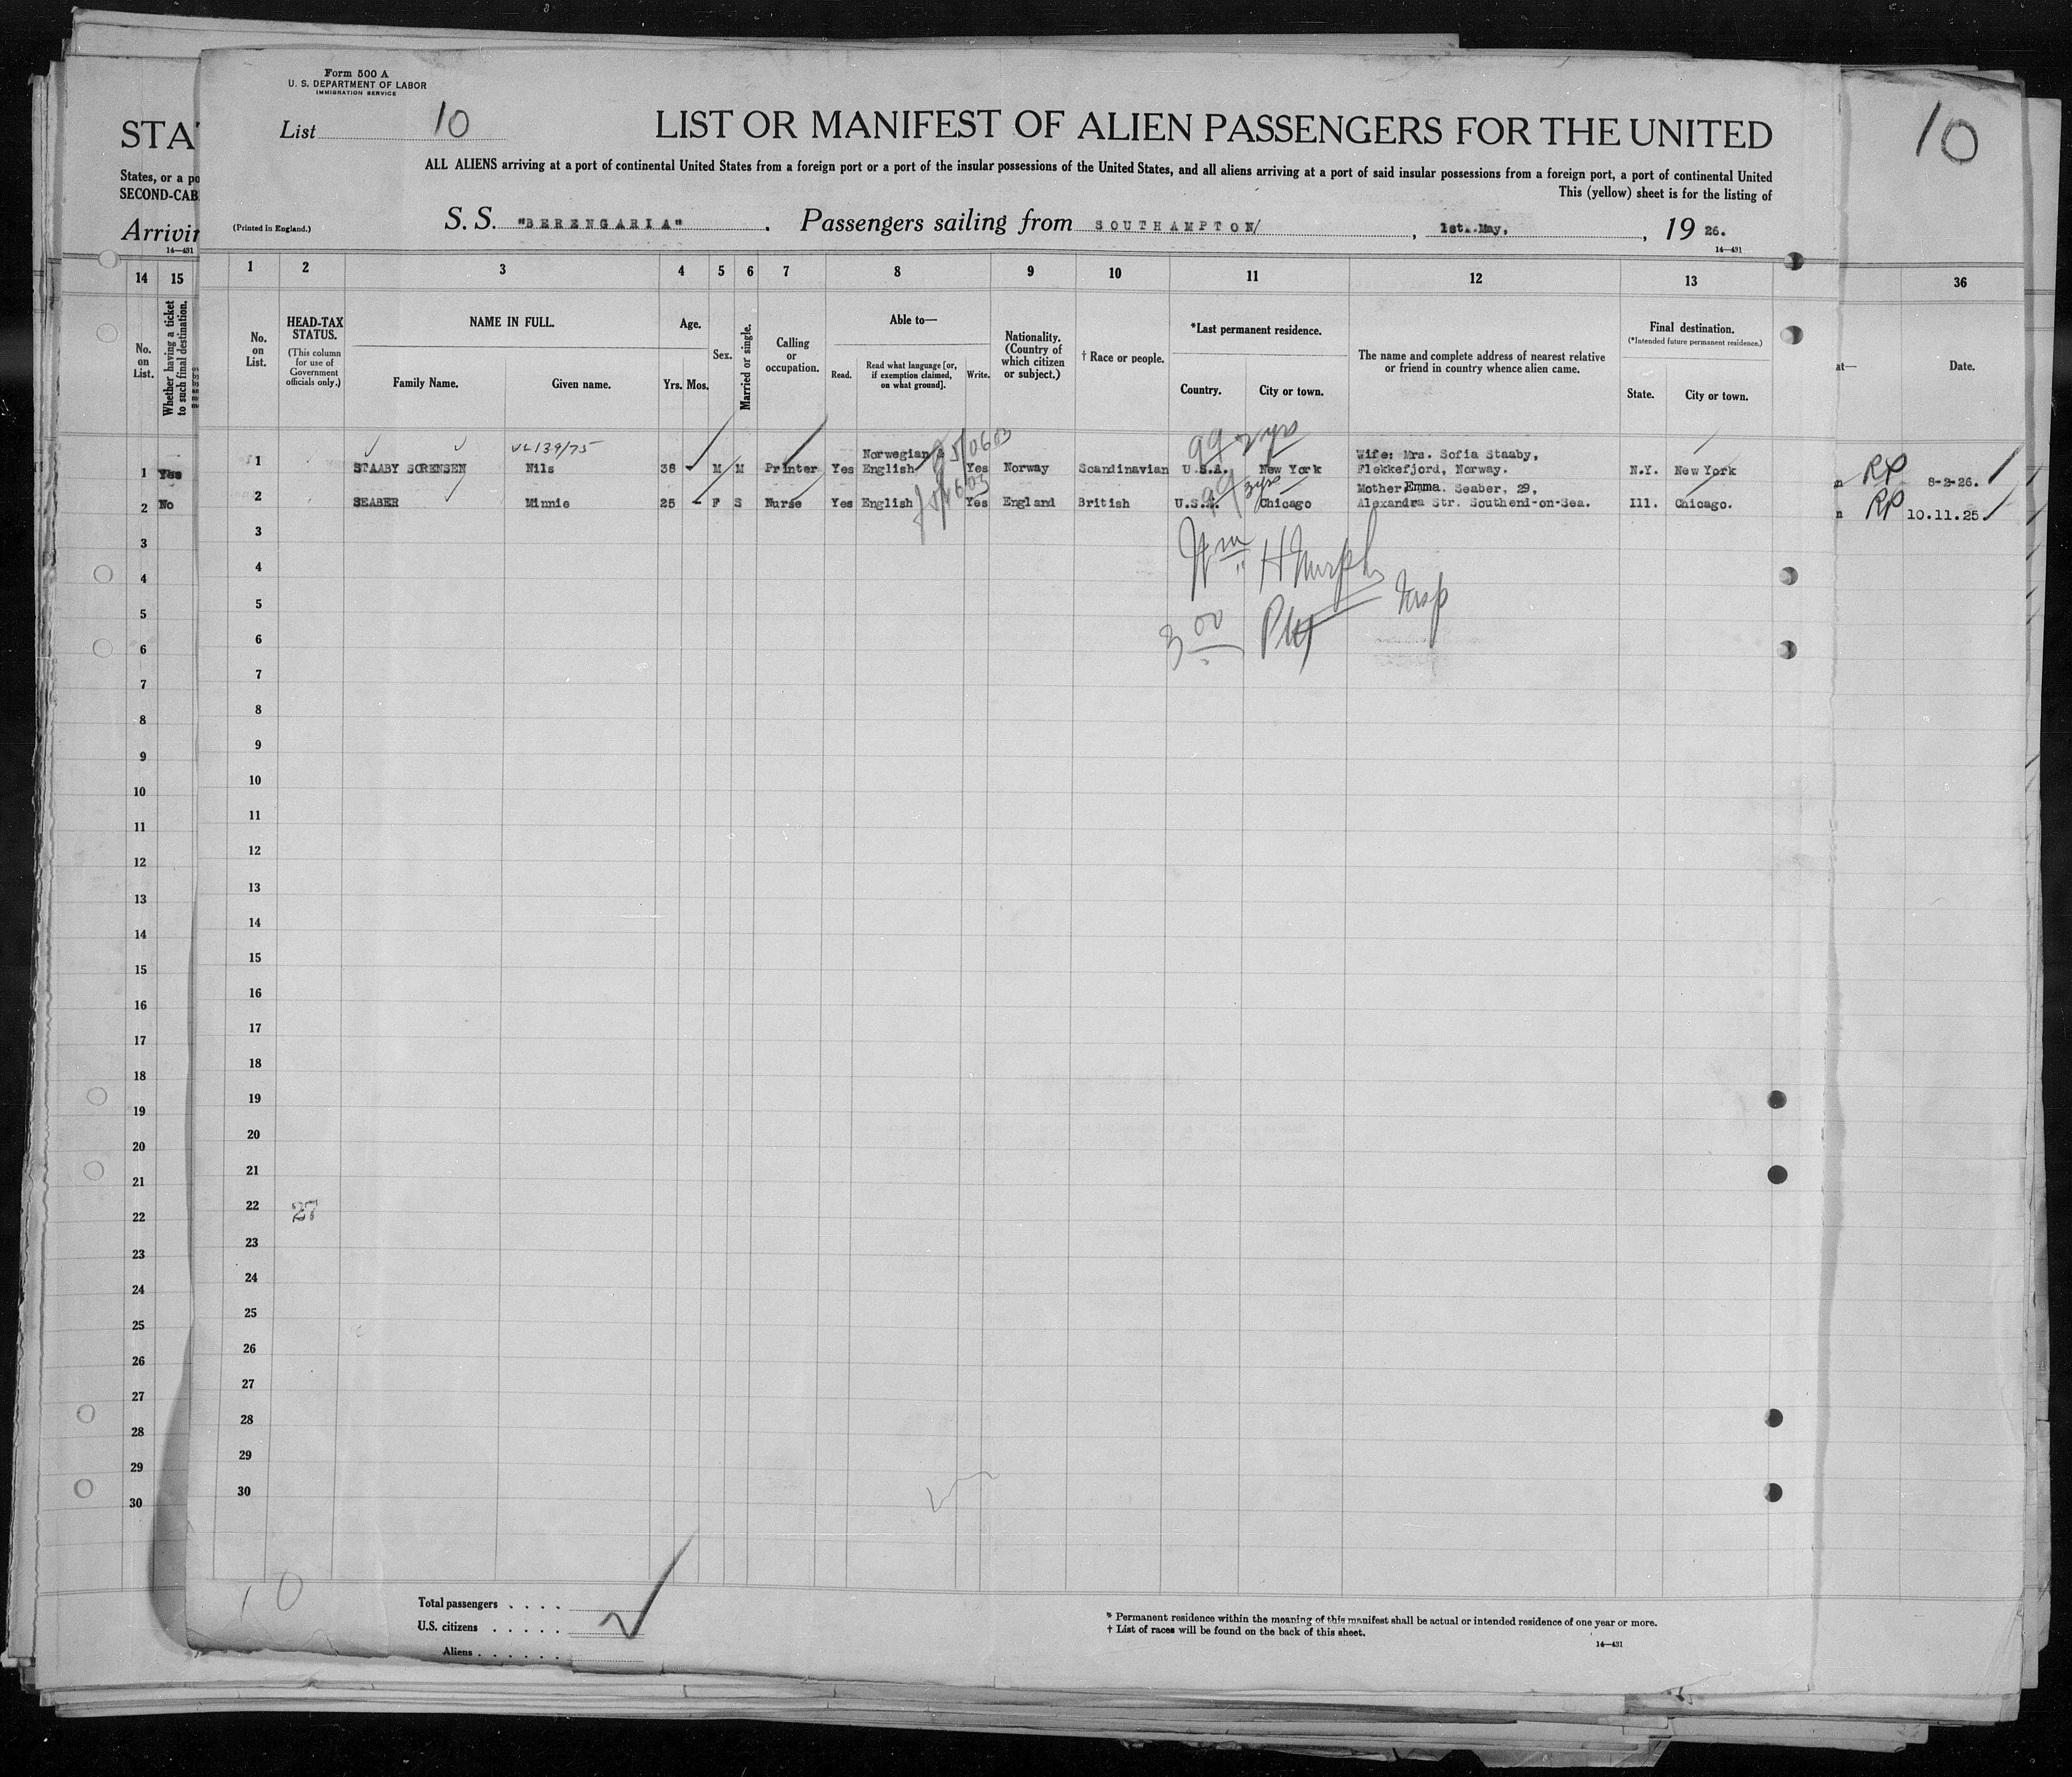 Form 500 A
U. S. DEPARTMENT OF LABOR
IMMIGRATION SERVICE
List 10
LIST OR MANIFEST OF ALIEN PASSENGERS FOR THE UNITED
10
STA
ALL ALIENS arriving at a port of continental United States from a foreign port or a port of the insular possessions of the United States, and all aliens arriving at a port of said insular possessions from a foreign port, a port of continental United
States, or a po
This (yellow) sheet is for the listing of
SECOND-CAB
Arrivin
14—431
(Printed in England.)
S. S. "BERENGARIA". Passengers sailing from SOUTHAMPTON/, 1st. May, 19 26.
14—431
14 15 1 2 3 4 5 6 7 8 9 10 11 12 13 36
No. on List.
Whether having a ticket to such final destination.
No. on List.
HEAD-TAX STATUS.
(This column for use of Government officials only.)
NAME IN FULL.
Family Name. Given name.
Age.
Yrs. Mos.
Sex.
Married or single.
Calling or occupation.
Able to—
Read. Read what language [or, if exemption claimed, on what ground]. Write.
Nationality. (Country of which citizen or subject.)
† Race or people.
*Last permanent residence.
Country. City or town.
The name and complete address of nearest relative or friend in country whence alien came.
Final destination.
(*Intended future permanent residence.)
State. City or town.
at—
Date.
99 2 yrs
Norwegian & Wife: Mrs. Sofia Staaby,
1 Yes 1 STAABY SORENSEN Nils 38 M M Printer Yes English Yes Norway Scandinavian U.S.A. New York Flekkefjord, Norway. N.Y. New York RP 8-2-26.
99 3yrs
Mother Emma. Seaber, 29,
2 No 2 SEABER Minnie 25 - F S Nurse Yes English Yes England British U.S.A. Chicago Alexandra Str. Southend-on-Sea. Ill. Chicago. RP 10.11.25.
3 3
Wm H Murphy
4 4
5 5
Insp
3 00
6 6
7 7
8 8
9 9
10 10
11 11
12 12
13 13
14 14
15 15
16 16
17 17
18 18
19 19
20 20
21 21
22 22 27
23 23
24 24
25 25
26 26
27 27
28 28
29 29
30 30
10
Total passengers . . . .
U.S. citizens . . . . .
Aliens . . . . . .
* Permanent residence within the meaning of this manifest shall be actual or intended residence of one year or more.
† List of races will be found on the back of this sheet.
14—431